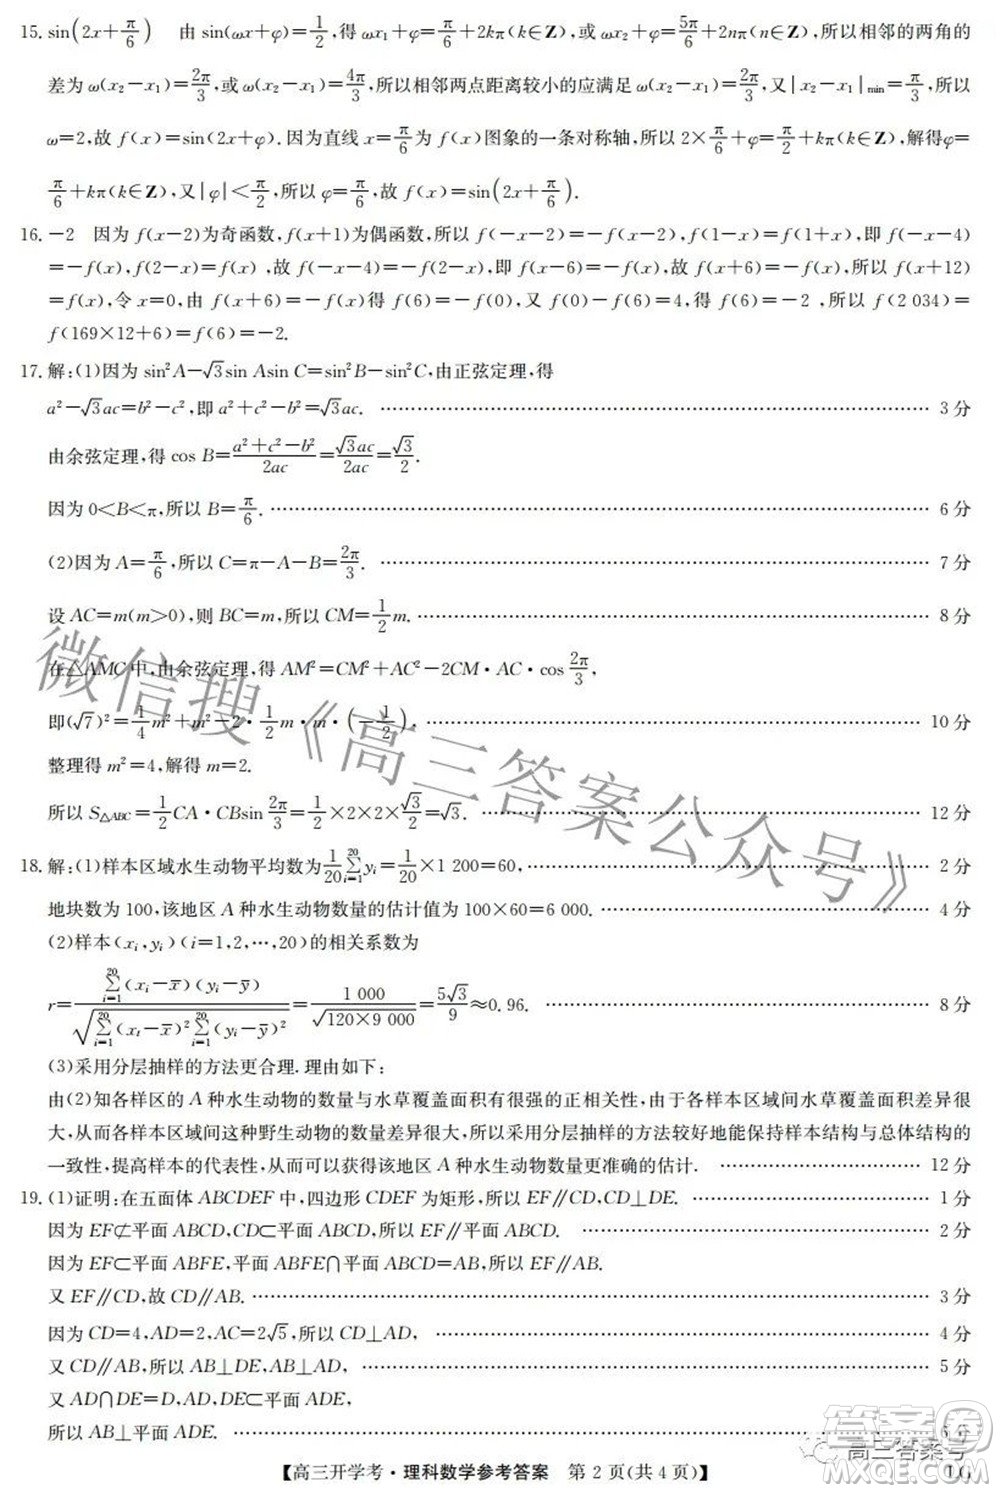 15. sin(2x+π/6)　由 sin(ωx+φ)=1/2,得 ωx₁+φ=π/6+2kπ(k∈Z),或 ωx₂+φ=5π/6+2nπ(n∈Z),所以相邻的两角的
差为 ω(x₂−x₁)=2π/3,或 ω(x₂−x₁)=4π/3,所以相邻两点距离较小的应满足 ω(x₂−x₁)=2π/3,又|x₂−x₁|min=π/3,所以
ω=2,故 f(x)=sin(2x+φ).因为直线 x=π/6为 f(x)图象的一条对称轴,所以 2×π/6+φ=π/2+kπ(k∈Z),解得φ=
π/6+kπ(k∈Z),又|φ|<π/2,所以 φ=π/6,故 f(x)=sin(2x+π/6).
16. −2　因为 f(x−2)为奇函数,f(x+1)为偶函数,所以 f(−x−2)=−f(x−2),f(1−x)=f(1+x),即 f(−x−4)
=−f(x),f(2−x)=f(x),故 f(−x−4)=−f(2−x),即 f(x−6)=−f(x),故 f(x+6)=−f(x),所以 f(x+12)
=f(x),令 x=0,由 f(x+6)=−f(x)得 f(6)=−f(0),又 f(0)−f(6)=4,得 f(6)=−2,所以 f(2 034)=
f(169×12+6)=f(6)=−2.
17. 解:(1)因为 sin²A−√3sin Asin C=sin²B−sin²C,由正弦定理,得
a²−√3ac=b²−c²,即 a²+c²−b²=√3ac. …… 3 分
由余弦定理,得 cos B=(a²+c²−b²)/2ac=√3ac/2ac=√3/2.
因为 0<B<π,所以 B=π/6. …… 6 分
(2)因为 A=π/6,所以 C=π−A−B=2π/3. …… 7 分
设 AC=m(m>0),则 BC=m,所以 CM=1/2m. …… 8 分
在△AMC 中,由余弦定理,得 AM²=CM²+AC²−2CM·AC·cos2π/3,
即(√7)²=1/4m²+m²−2·1/2m·m·(−1/2), …… 10 分
整理得 m²=4,解得 m=2.
所以 S△ABC=1/2CA·CBsin2π/3=1/2×2×2×√3/2=√3. …… 12 分
18. 解:(1)样本区域水生动物平均数为1/20∑(i=1→20)yᵢ=1/20×1 200=60, …… 2 分
地块数为 100,该地区 A 种水生动物数量的估计值为 100×60=6 000. …… 4 分
(2)样本(xᵢ,yᵢ)(i=1,2,…,20)的相关系数为
r=∑(i=1→20)(xᵢ−x̄)(yᵢ−ȳ)/√(∑(i=1→20)(xᵢ−x̄)²∑(i=1→20)(yᵢ−ȳ)²)=1 000/√(120×9 000)=5√3/9≈0.96. …… 8 分
(3)采用分层抽样的方法更合理.理由如下:
由(2)知各样区的 A 种水生动物的数量与水草覆盖面积有很强的正相关性,由于各样本区域间水草覆盖面积差异很
大,从而样本区域间这种野生动物的数量差异很大,所以采用分层抽样的方法较好地能保持样本结构与总体结构的
一致性,提高样本的代表性,从而可以获得该地区 A 种水生动物数量更准确的估计. …… 12 分
19. (1)证明:在五面体 ABCDEF 中,四边形 CDEF 为矩形,所以 EF∥CD,CD⊥DE. …… 1 分
因为 EF⊄平面 ABCD,CD⊂平面 ABCD,所以 EF∥平面 ABCD. …… 2 分
因为 EF⊂平面 ABFE,平面 ABFE∩平面 ABCD=AB,所以 EF∥AB.
又 EF∥CD,故 CD∥AB. …… 3 分
因为 CD=4,AD=2,AC=2√5,所以 CD⊥AD, …… 4 分
又 CD∥AB,所以 AB⊥DE,AB⊥AD, …… 5 分
又 AD∩DE=D,AD,DE⊂平面 ADE,
所以 AB⊥平面 ADE. …… 6 分
【高三开学考·理科数学参考答案　第 2 页(共 4 页)】
微信搜《高三答案公众号》
高三答案号
答案圈
MXQE.COM